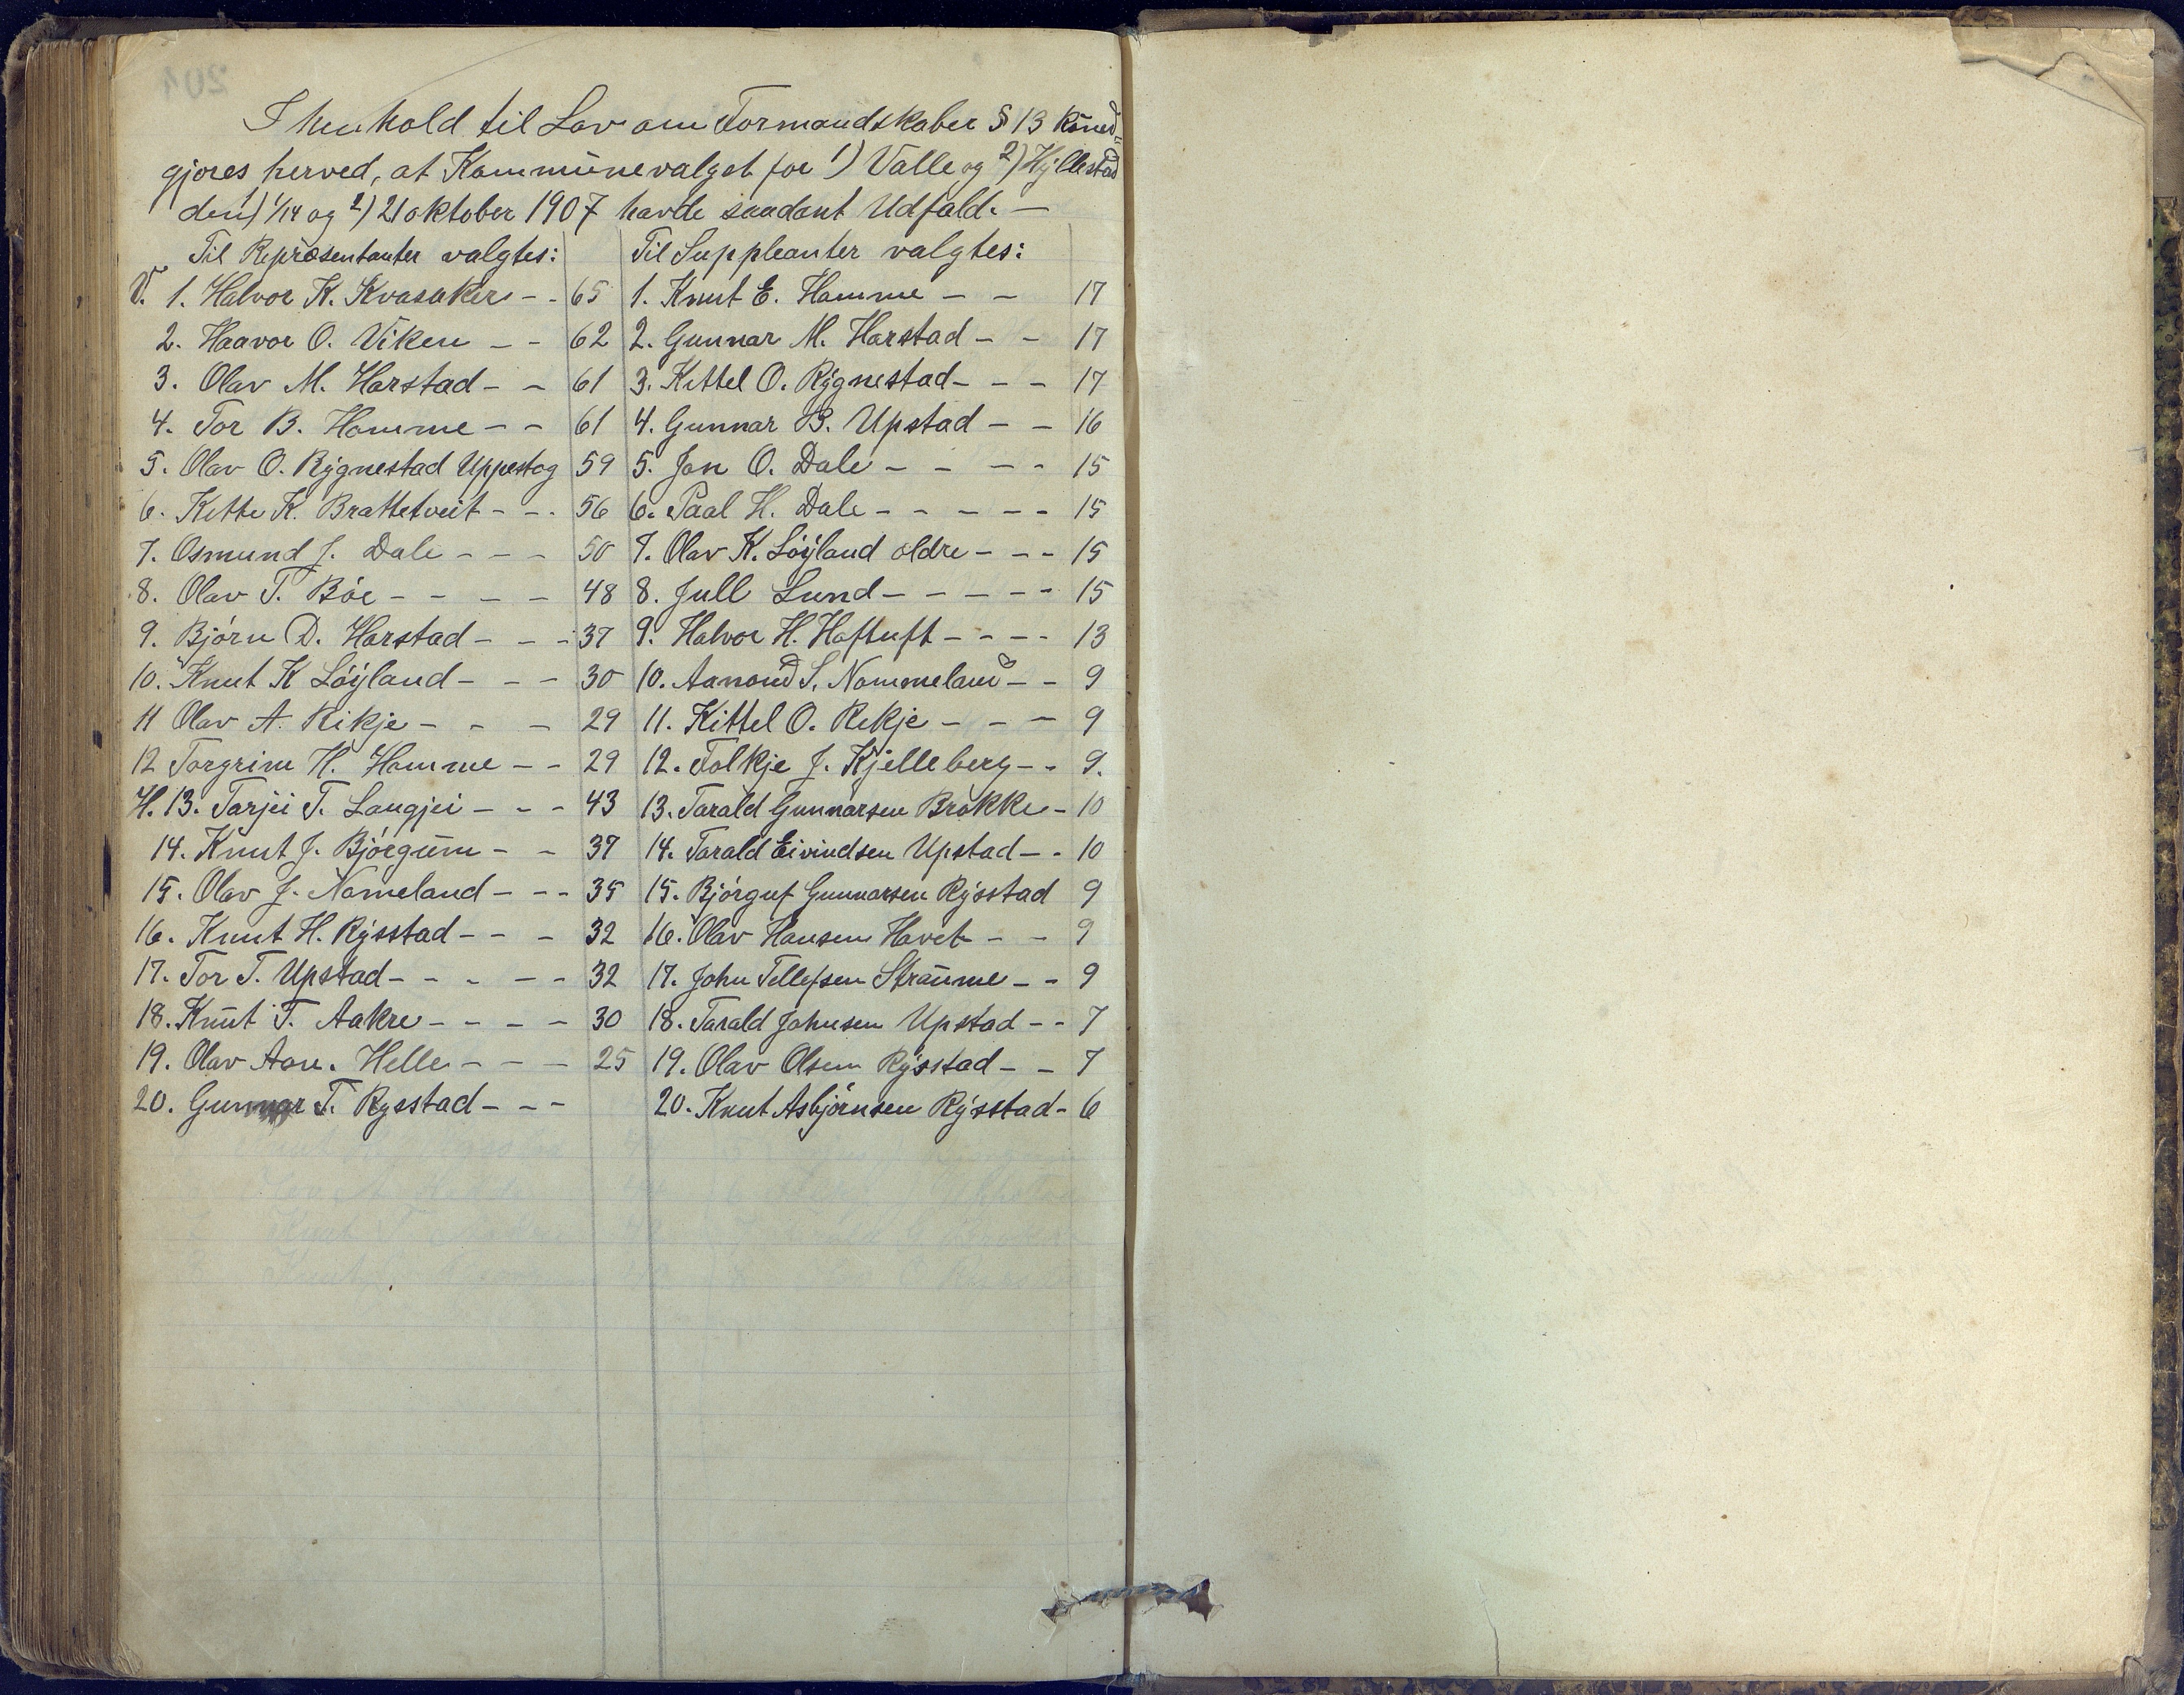 I henhold til Lov om Formandskaber § 13 kund-
gjøres herved, at Kommunevalget for 1) Valle og 2) Hyllestad
den 1) 14 og 2) 21 oktober 1907 havde saadant Udfald. —
Til Repræsentanter valgtes: Til Suppleanter valgtes:
V. 1. Halvor K. Kvasaker - - 65 1. Knut E. Homme - - 17
2. Haavor O. Viken - - 62 2. Gunnar M. Harstad - - 17
3. Olav M. Harstad - - 61 3. Kittel O. Rygnestad - - - 17
4. Tor B. Homme - - 61 4. Gunnar B. Upstad - - 16
5. Olav O. Rygnestad Uppestog 59 5. Jon O. Dale - - - - 15
6. Kitte K. Brattetveit - - - 56 6. Paal H. Dale - - - - - 15
7. Osmund J. Dale - - - 50 7. Olav K. Løyland ældre - - - 15
8. Olav T. Bøe - - - - 48 8. Jull Lund - - - - - 15
9. Bjørn D. Harstad - - - 37 9. Halvor H. Haftuft - - - - 13
10. Knut K Løyland - - - 30 10. Aanond S. Nommeland - - 9
11 Olav A. Rikje - - - 29 11. Kittel O. Rikje - - - 9
12 Torgrim H. Homme - - 29 12. Folkje J. Kjelleberg - - 9.
H. 13. Tarjei T. Langjei - - - 43 13. Tarald Gunnarsen Brokke - 10
14. Knut J. Bjørgum - - 37 14. Tarald Eivindsen Upstad - - 10
15. Olav J. Nomeland - - - 35 15. Bjørguf Gunnarsen Rysstad 9
16. Knut H. Rysstad - - - 32 16. Olav Hansen Hovet - - 9
17. Tor T. Upstad - - - - - 32 17. John Tellefsen Straume - - 9
18. Knut T. Aakre - - - - 30 18. Tarald Johnsen Upstad - - 7
19. Olav Aan. Helle - - - 25 19. Olav Olsen Rysstad - - 7
20. Gunnar T. Rysstad - - - 20. Knut Asbjørnsen Rysstad - 6